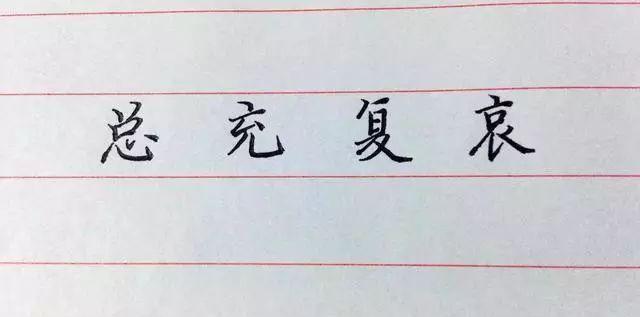 总充复哀